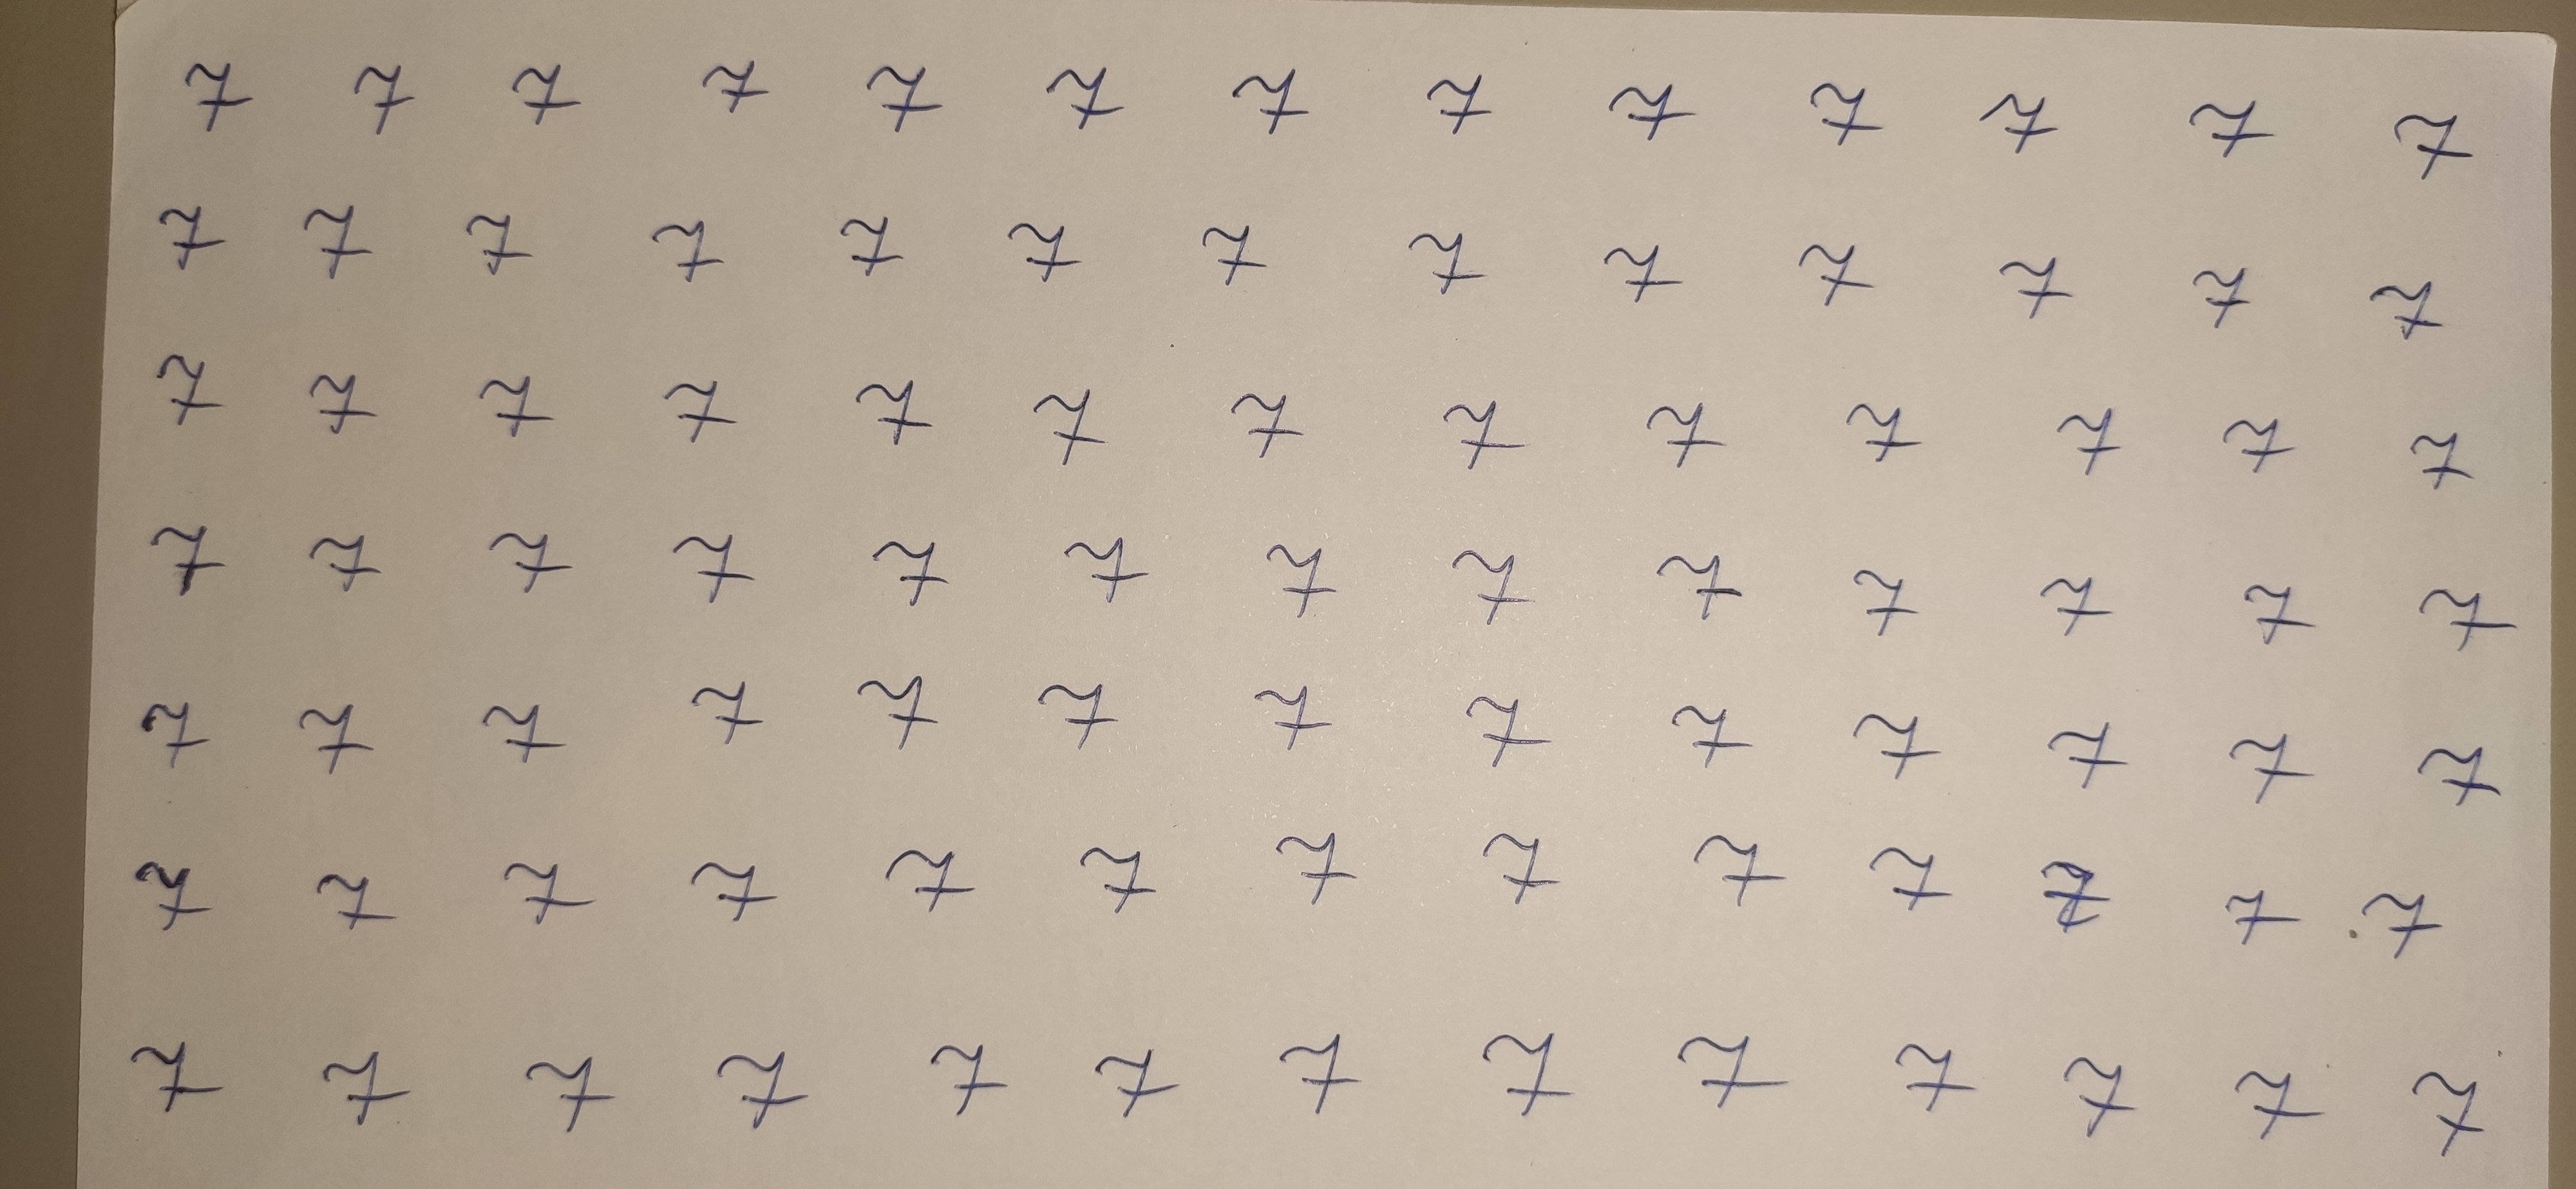 7 7 7 7 7 7 7 7 7 7 7 7 7
7 7 7 7 7 7 7 7 7 7 7 7 7
7 7 7 7 7 7 7 7 7 7 7 7 7
7 7 7 7 7 7 7 7 7 7 7 7 7
7 7 7 7 7 7 7 7 7 7 7 7 7
7 7 7 7 7 7 7 7 7 7 7 7 7
7 7 7 7 7 7 7 7 7 7 7 7 7